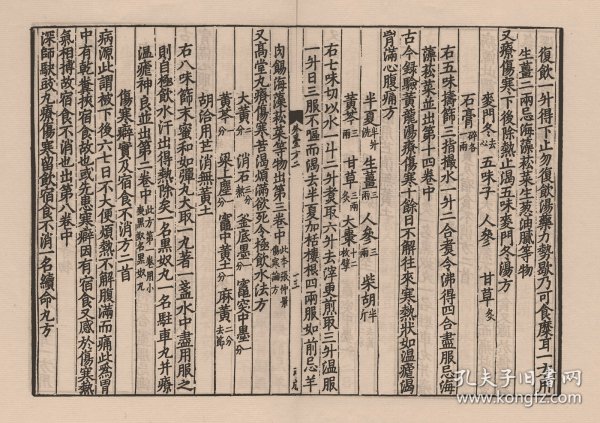 復飲一升得下止勿復飲湯藥力勢歇乃可食糜耳一方用
生薑二兩忌海藻菘菜生葱油膩等物
又療傷寒下後除熱止渴五味麥門冬湯方
麥門冬去心 五味子 人參 甘草炙
石膏碎各一兩
右五味擣篩三指撮水一升二合煮令沸得四合盡服忌海
藻菘菜並出第十四卷中
古今錄驗黃龍湯療傷寒十餘日不解往來寒熱狀如溫瘧渴
胷滿心腹痛方
半夏半升洗 生薑三兩 人參三兩 柴胡半斤
黃芩三兩 甘草炙三兩 大棗十二枚擘
右七味切以水一斗二升煮取六升去滓更煎取三升溫服
一升日三服不嘔而渴去半夏加栝樓根四兩服如前忌羊
肉餳海藻菘菜等物出第三卷中此本張仲景傷寒論方
又高堂丸療傷寒苦渴煩滿欲死令極飲水法方
大黃二分 消石三分 釜底墨一分 竈突中墨一分
黃芩一分 梁上塵一分 竈中黃土一分 麻黃二分去節
胡洽用芒消無黃土
右八味篩末蜜和如彈丸大取一丸著一盞水中盡用服之
則自極飲水汗出得熱除矣一名黑奴丸一名駐車丸并療
溫瘧神良並出第二卷中
傷寒癖實及宿食不消方二首
病源此謂被下後六七日不大便煩熱不解腹滿而痛此爲胃
中有乾糞挾宿食故也或先患寒癖因有宿食又感於傷寒熱
氣相搏故宿食不消也出第八卷中
深師駃豉丸療傷寒留飲宿食不消一名續命丸方
孔夫子旧书网
www.kongfz.com